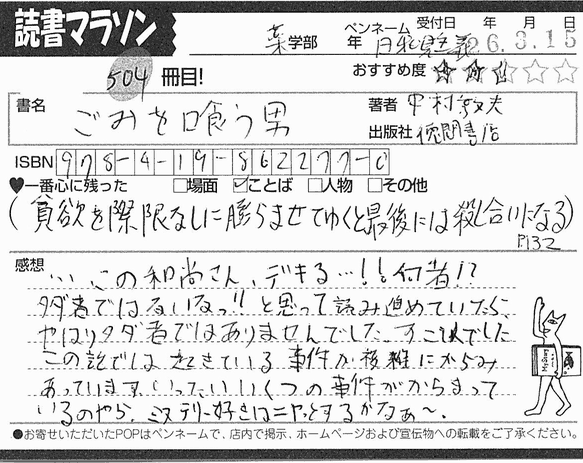 読書マラソン
薬学部 年 ペンネーム 受付日 年 月 日
26.3.15
504冊目! おすすめ度 ★★☆☆☆
書名 ごみを喰う男
著者 中村敦夫
出版社 徳間書店
ISBN 978-4-19-862277-0
♥一番心に残った □場面 ☑ことば □人物 □その他
(貪欲を際限なしに膨らませてゆくと最後には殺し合いになる)
P132
感想 … この和尚さん、デキる…!! 何者!?
タダ者ではないなっ!! と思って読み進めていたら、
やはりタダ者ではありませんでした。すごいでした
この訳では起きている事件が複雑にからみ
あっています。いったいいくつの事件がからまって
いるのやら。ミステリー好きはニヤッとするかなぁ〜。
●お寄せいただいたPOPはペンネームで、店内で掲示、ホームページおよび宣伝物への転載をご了承ください。